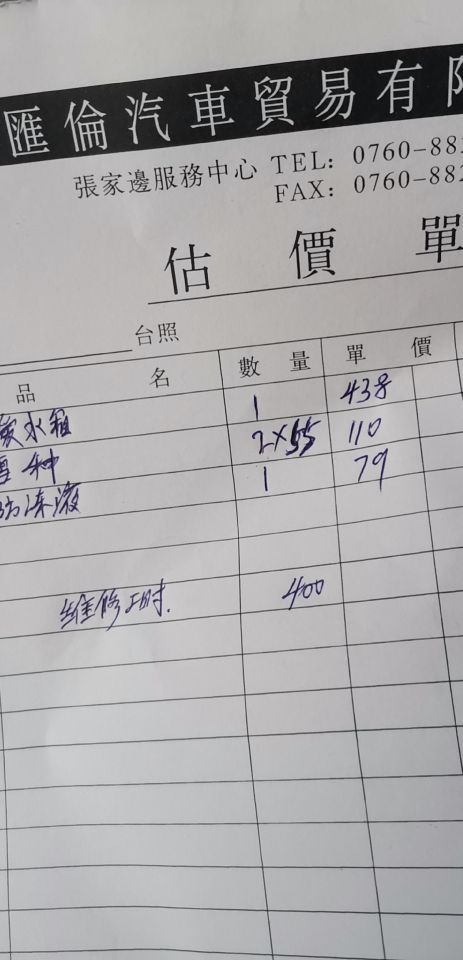 匯倫汽車貿易有
張家邊服務中心 TEL: 0760-882
FAX: 0760-882
估價單
台照
品名 數量 單價
水箱 1 438
雪种 2×55 110
防冻液 1 79
维修工时. 400